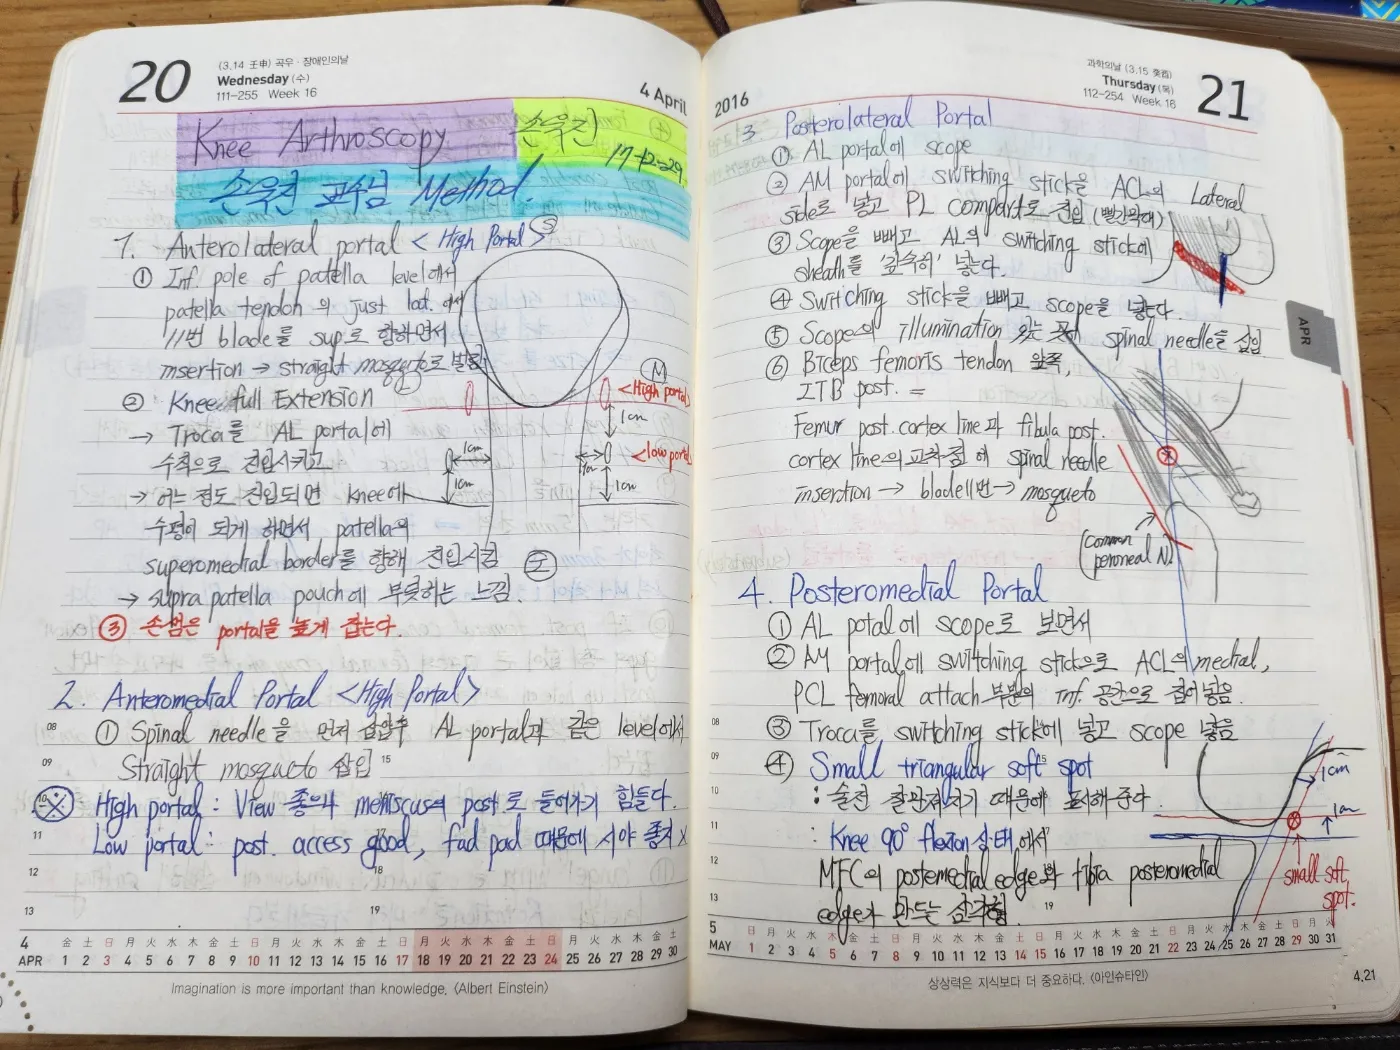 20
(3.14 壬申) 곡우 · 장애인의날
Wednesday (수)
111-255 Week 16
4 April
Knee Arthroscopy 손욱진
17-12-29
손욱진 교수님 Method.
1. Anterolateral portal <High Portal>
① Inf. pole of patella level에서
patella tendon의 just lat.에서
11번 blade를 sup로 향하면서
insertion → straight mosquito로 벌림
② Knee full Extension
→ Troca를 AL portal에
수직으로 진입시키고
→ 어느정도 진입되면 knee에
수평이 되게 하면서 patella의
superomedial border를 향해 진입시킴
→ supra patella pouch에 부딪히는 느낌.
③ 손범은 portal을 높게 잡는다.
M
<High portal>
1cm
<low portal>
1cm
1cm
1cm
2. Anteromedial Portal <High Portal>
① Spinal needle을 먼저 삽입후 AL portal과 같은 level에서
Straight mosqueto 삽입
※ High portal : View 좋으나 meniscus의 post로 들어가기 힘들다.
Low portal : post. access good, fad pad 때문에 시야 좋지 x
08
09
10
11
12
13
15
18
19
4 APR
金 土 日 月 火 水 木 金 土 日 月 火 水 木 金 土 日 月 火 水 木 金 土 日 月 火 水 木 金 土
1 2 3 4 5 6 7 8 9 10 11 12 13 14 15 16 17 18 19 20 21 22 23 24 25 26 27 28 29 30
Imagination is more important than knowledge. (Albert Einstein)
2016
과학의날 (3.15 癸酉)
Thursday (목)
112-254 Week 16
21
3. Posterolateral Portal
① AL portal에 scope
② AM portal에 switching stick을 ACL의 Lateral
side로 넣고 PL compart로 진입 (빨간막대)
③ Scope을 빼고 AL의 switching stick에
sheath를 '깊숙히' 넣는다.
④ Switching stick을 빼고 scope을 넣는다.
⑤ Scope의 illumination 있는 곳에 spinal needle을 삽입
⑥ Biceps femoris tendon 앞쪽,
ITB post. =
Femur post. cortex line과 fibula post.
cortex line의 교차점에 spinal needle
insertion → blade11번 → mosqueto
(common
peroneal N.)
APR
4. Posteromedial Portal
① AL potal에 scope로 보면서
② AM portal에 switching stick으로 ACL의 medial,
PCL femoral attach 부분의 inf. 공간으로 집어넣음.
③ Troca를 switching stick에 넣고 scope 넣음
④ Small triangular soft spot
: 술전 촬관절시 때문에 표시해준다.
: Knee 90° flexion 상태에서
MFC의 postemedial edge와 tibia posteromedial
edge가 만드는 삼각형.
1cm
1cm
small soft
spot.
08
09
10
11
12
13
15
19
5 MAY
日 月 火 水 木 金 土 日 月 火 水 木 金 土 日 月 火 水 木 金 土 日 月 火 水 木 金 土 日 月 火
1 2 3 4 5 6 7 8 9 10 11 12 13 14 15 16 17 18 19 20 21 22 23 24 25 26 27 28 29 30 31
상상력은 지식보다 더 중요하다. (아인슈타인)
4.21